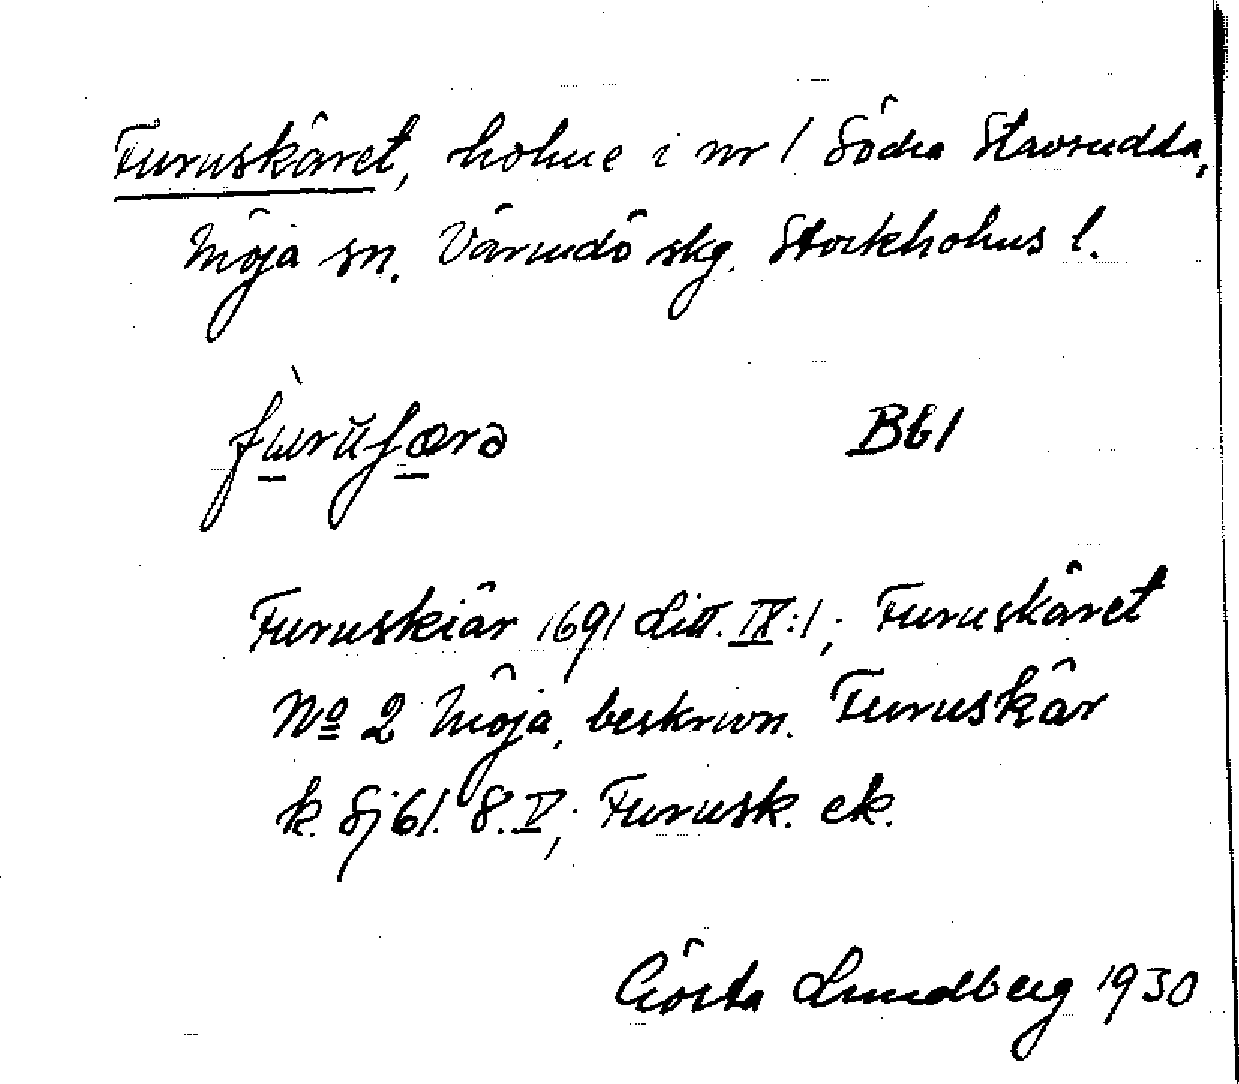 Furuskäret, holme i nr 1 Södra Stavsudda,
Möja sn. Värmdö skg. Stockholms l.
B61
Furuskiär 1691 Litt. IX:1; Furuskäret
No 2 Möja, beskrivn. Furuskär
k. Sj 61. 8. V; Furusk. ek.
Gösta Lundberg 1930